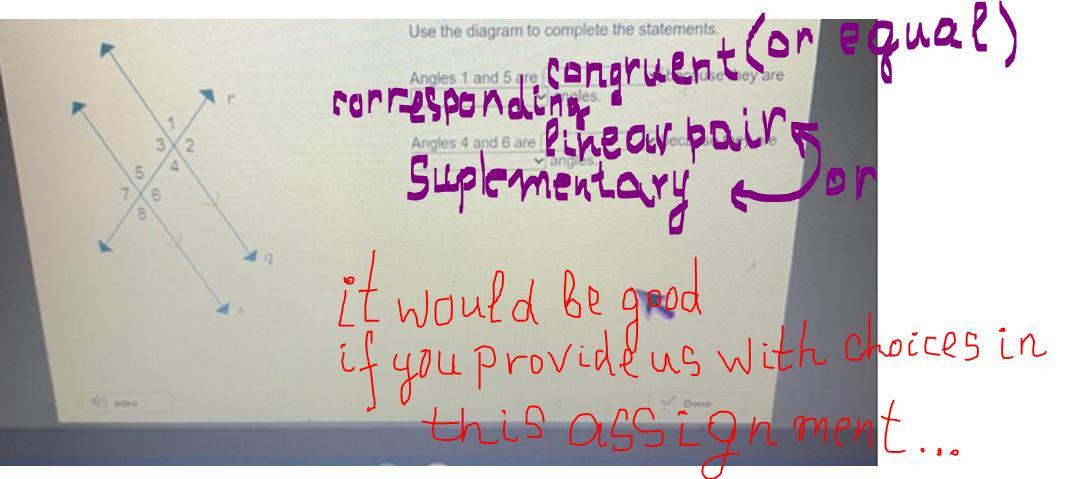 Use the diagram to complete the statements.
congruent (or equal)
Angles 1 and 5 are because they are
corresponding angles.
linear pair
Angles 4 and 6 are
angles.
Suplementary or
r
1
3 2
4
5
7 6
8
q
s
it would be good
if you provide us with choices in
this assignment...
Intro
Done